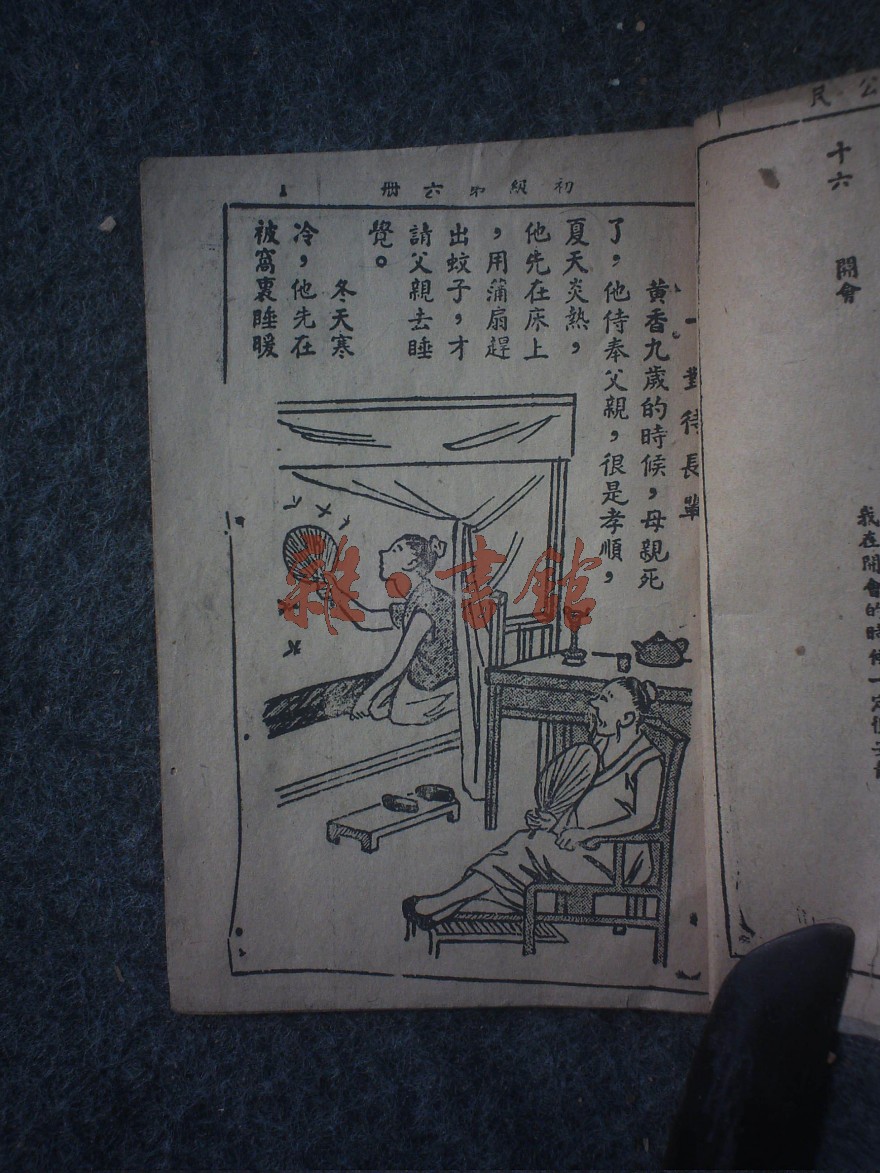 公民
十六 開會
我在開會的時候一定
初級第六冊
1
一 對待長輩
黃香九歲的時候,母親死
了,他侍奉父親,很是孝順,
夏天炎熱,
他先在床上
,用蒲扇趕
出蚊子,才
請父親去睡
覺。
冬天寒
冷,他先在
被窩裏睡暖
雜·書館